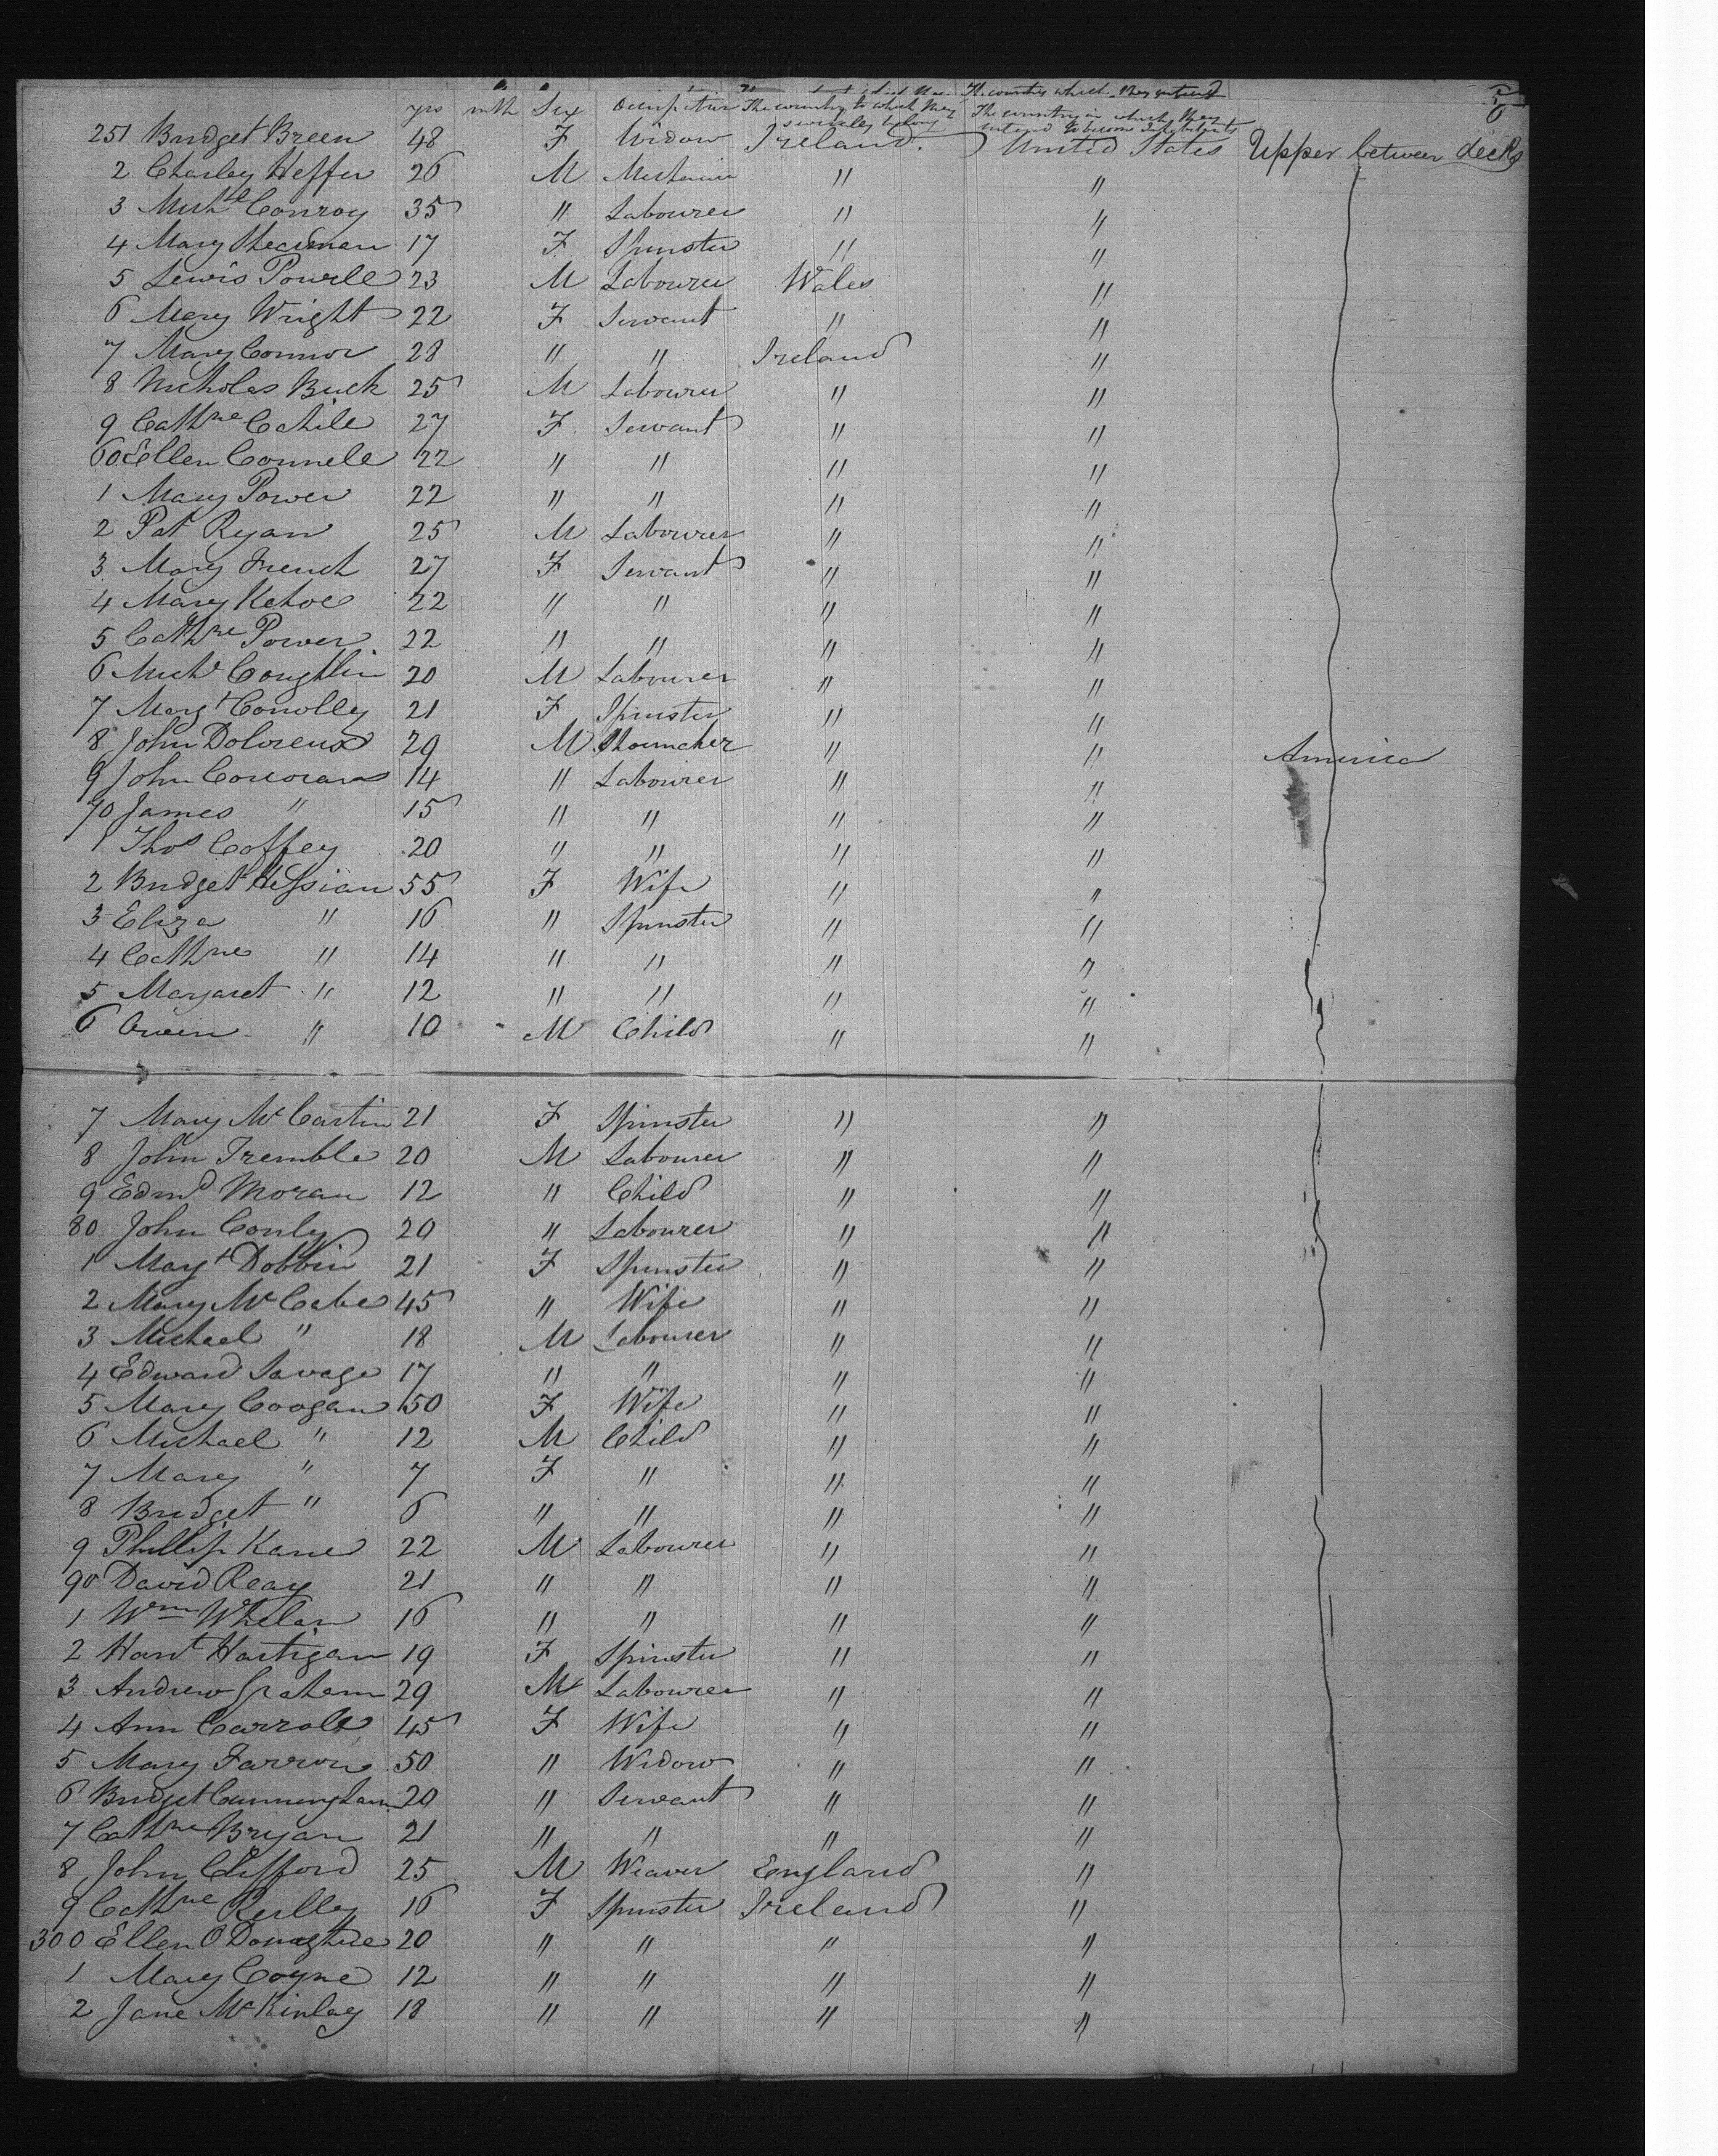 yrs mth Sex Occupation The country to which they severally belong The country in which they intend to become inhabitants
251 Bridget Breen 48 F Widow Ireland United States Upper between decks
2 Charley Heffer 26 M Mechanic " "
3 Michl Conroy 35 " Labourer " "
4 Mary 17 F Spinster " "
5 Lewis Powell 23 M Labourer Wales "
6 Mary Wright 22 F Servant " "
7 Mary Connor 28 " " Ireland "
8 Nicholas Buck 25 M Labourer " "
9 Cathne Cahill 27 F Servant " "
60 Ellen Connell 22 " " " "
1 Mary Power 22 " " " "
2 Pat Ryan 25 M Labourer " "
3 Mary French 27 F Servant " "
4 Mary Kehoe 22 " " " "
5 Cathne Power 22 " " " "
6 Michl Coughlin 20 M Labourer " "
7 Margt Conolly 21 F Spinster " "
8 John 29 M Shoemaker " " America
9 John Corcoran 14 " Labourer " "
70 James " 15 " " " "
1 Thos Coffey 20 " " " "
2 Bridget Hessian 55 F Wife " "
3 Eliza " 16 " Spinster " "
4 Cathne " 14 " " " "
5 Margaret " 12 " " " "
6 Owen " 10 M Child " "
7 Mary McCartin 21 F Spinster " "
8 John Tremble 20 M Labourer " "
9 Edmd Moran 12 " Child " "
80 John Conly 20 " Labourer " "
1 Margt Dobbin 21 F Spinster " "
2 Mary McCabe 45 " Wife " "
3 Michael " 18 M Labourer " "
4 Edward Savage 17 " " " "
5 Mary Coogan 50 F Wife " "
6 Michael " 12 M Child " "
7 Mary " 7 F " " "
8 Bridget " 6 " " " "
9 Phillip Kane 22 M Labourer " "
90 David Reay 21 " " " "
1 Wm Whelan 16 " " " "
2 Hant Hartigan 19 F Spinster " "
3 Andrew Graham 29 M Labourer " "
4 Ann Carroll 45 F Wife " "
5 Mary Farron 50 " Widow " "
6 Bridget Cunningham 20 " Servant " "
7 Cathne Bryan 21 " " " "
8 John Clifford 25 M Weaver England "
9 Cathne Reilly 16 F Spinster Ireland "
300 Ellen O'Donaghue 20 " " " "
1 Mary Coyne 12 " " " "
2 Jane McKinlay 18 " " " "